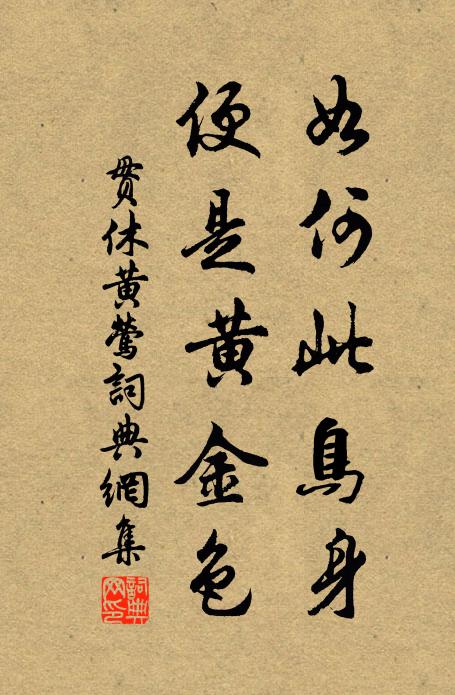 如何此鳥身
便是黃金色
貫休黃鶯詞典網集
詞典网印